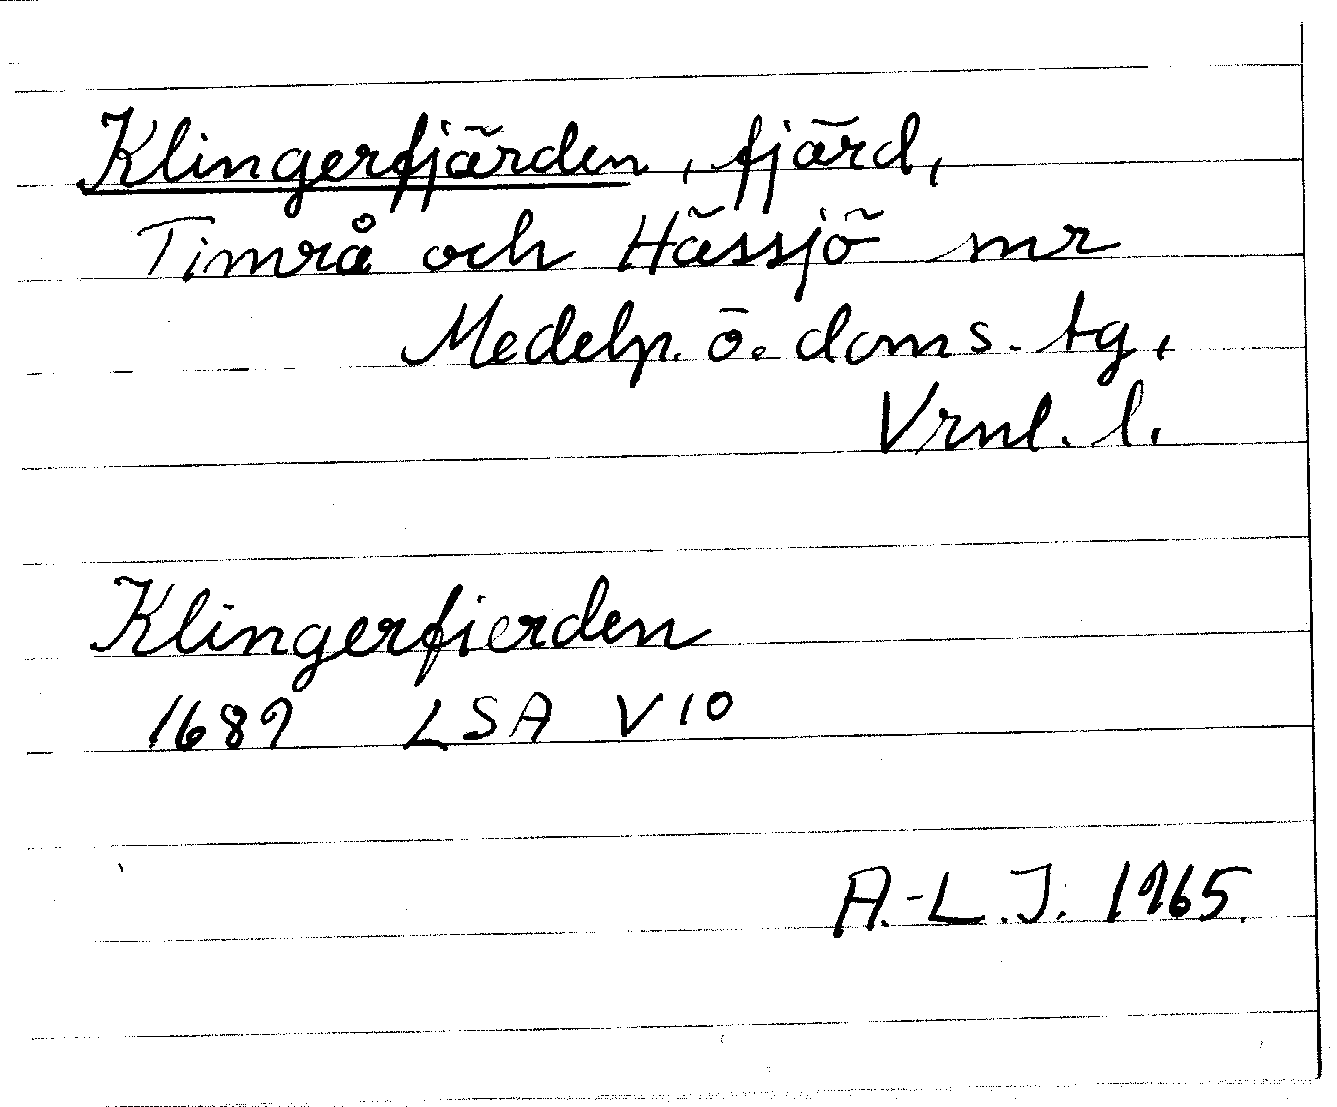 Klingerfjärden, fjärd,
Timrå och Hässjö snr
Medelp. ö. doms. tg,
Vrnl. l.
Klingerfierden
1689 LSA V10
A.-L.J. 1965.